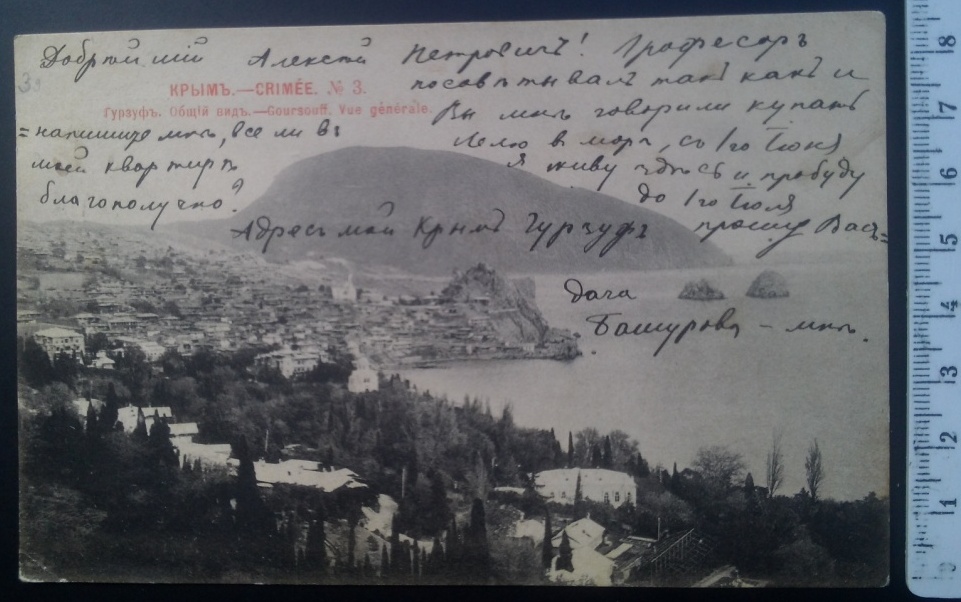 Добрый мій Алексей Петровичъ! Профессоръ
посовѣтывалъ такъ какъ и
Вы мнѣ говорили купать
Лелю въ морѣ, съ 1го Іюня
я живу здѣсь и пробуду
до 1го Іюля
Адресъ мой Крымъ Гурзуфъ прошу Васъ=
дача
Башурова - мнѣ
=напишите мнѣ, все ли въ
моей квартирѣ
благополучно?
КРЫМЪ.—CRIMÉE. № 3.
Гурзуфъ. Общій видъ.—Goursouff. Vue générale.
8
7
6
5
4
3
2
1
0